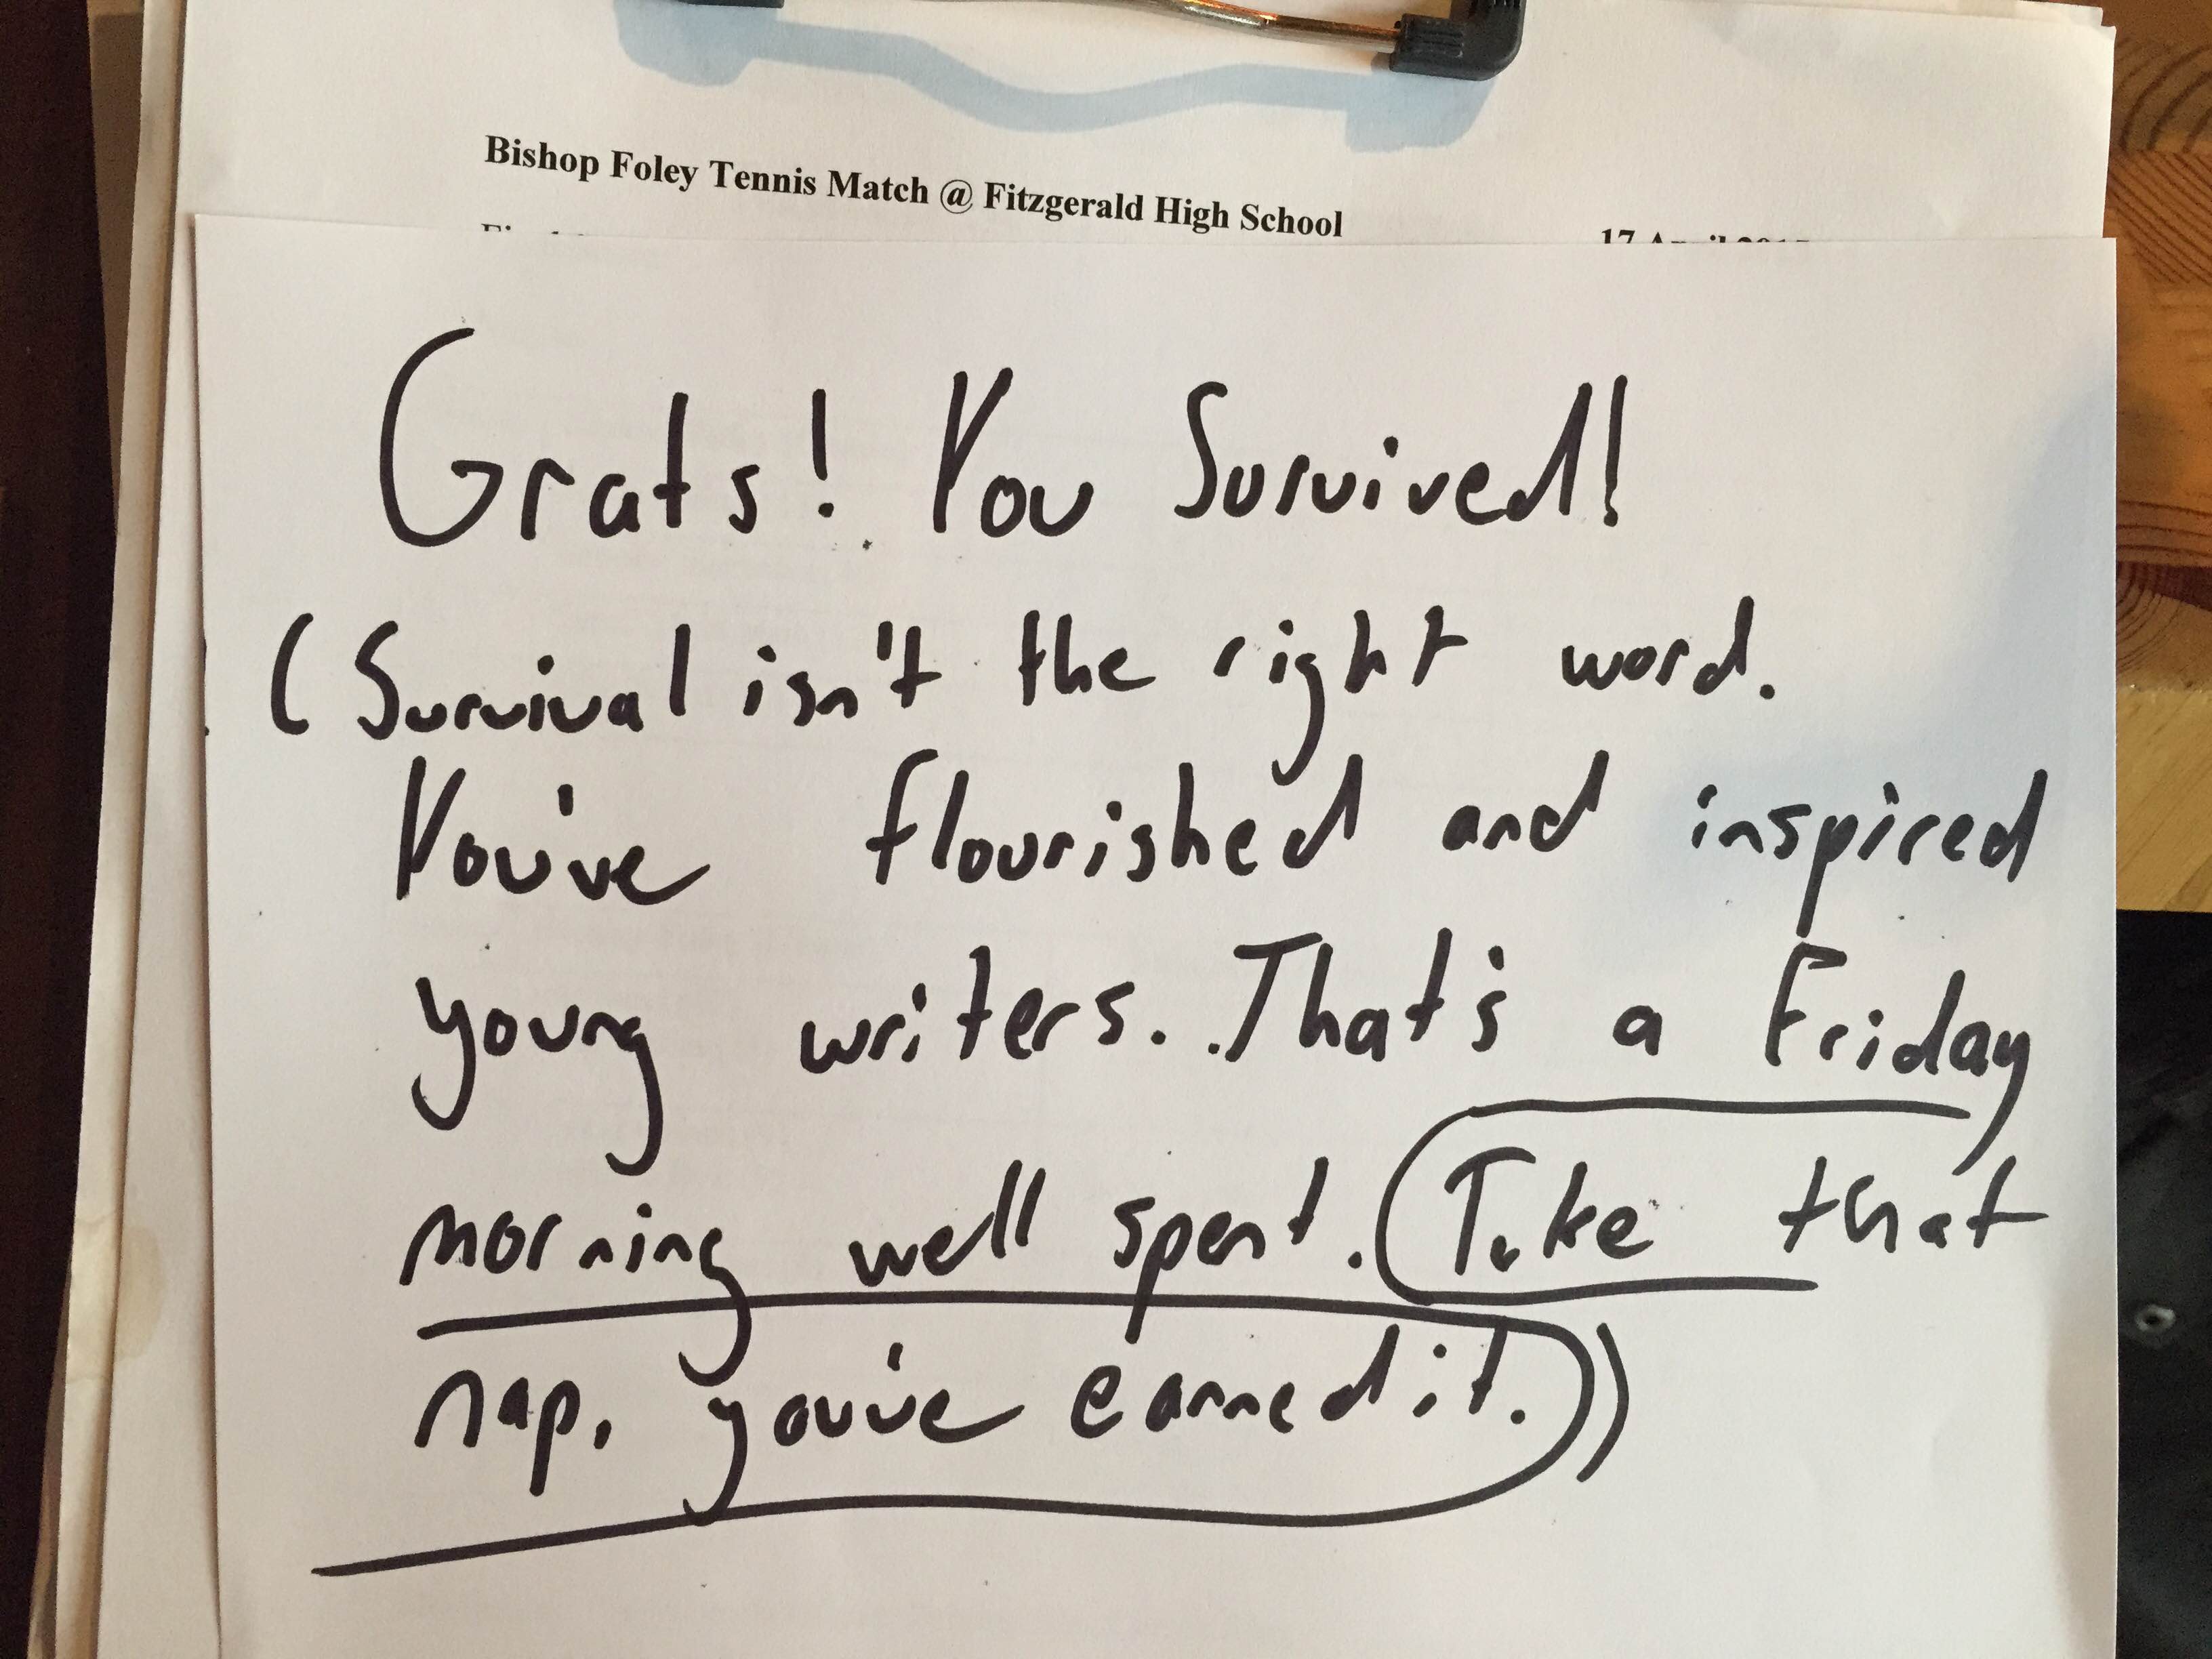 Bishop Foley Tennis Match @ Fitzgerald High School
17 April
Grats! You Survived!
(Survival isn't the right word.
You've flourished and inspired
young writers. That's a Friday
morning well spent. (Take that
nap, you've earned it.))